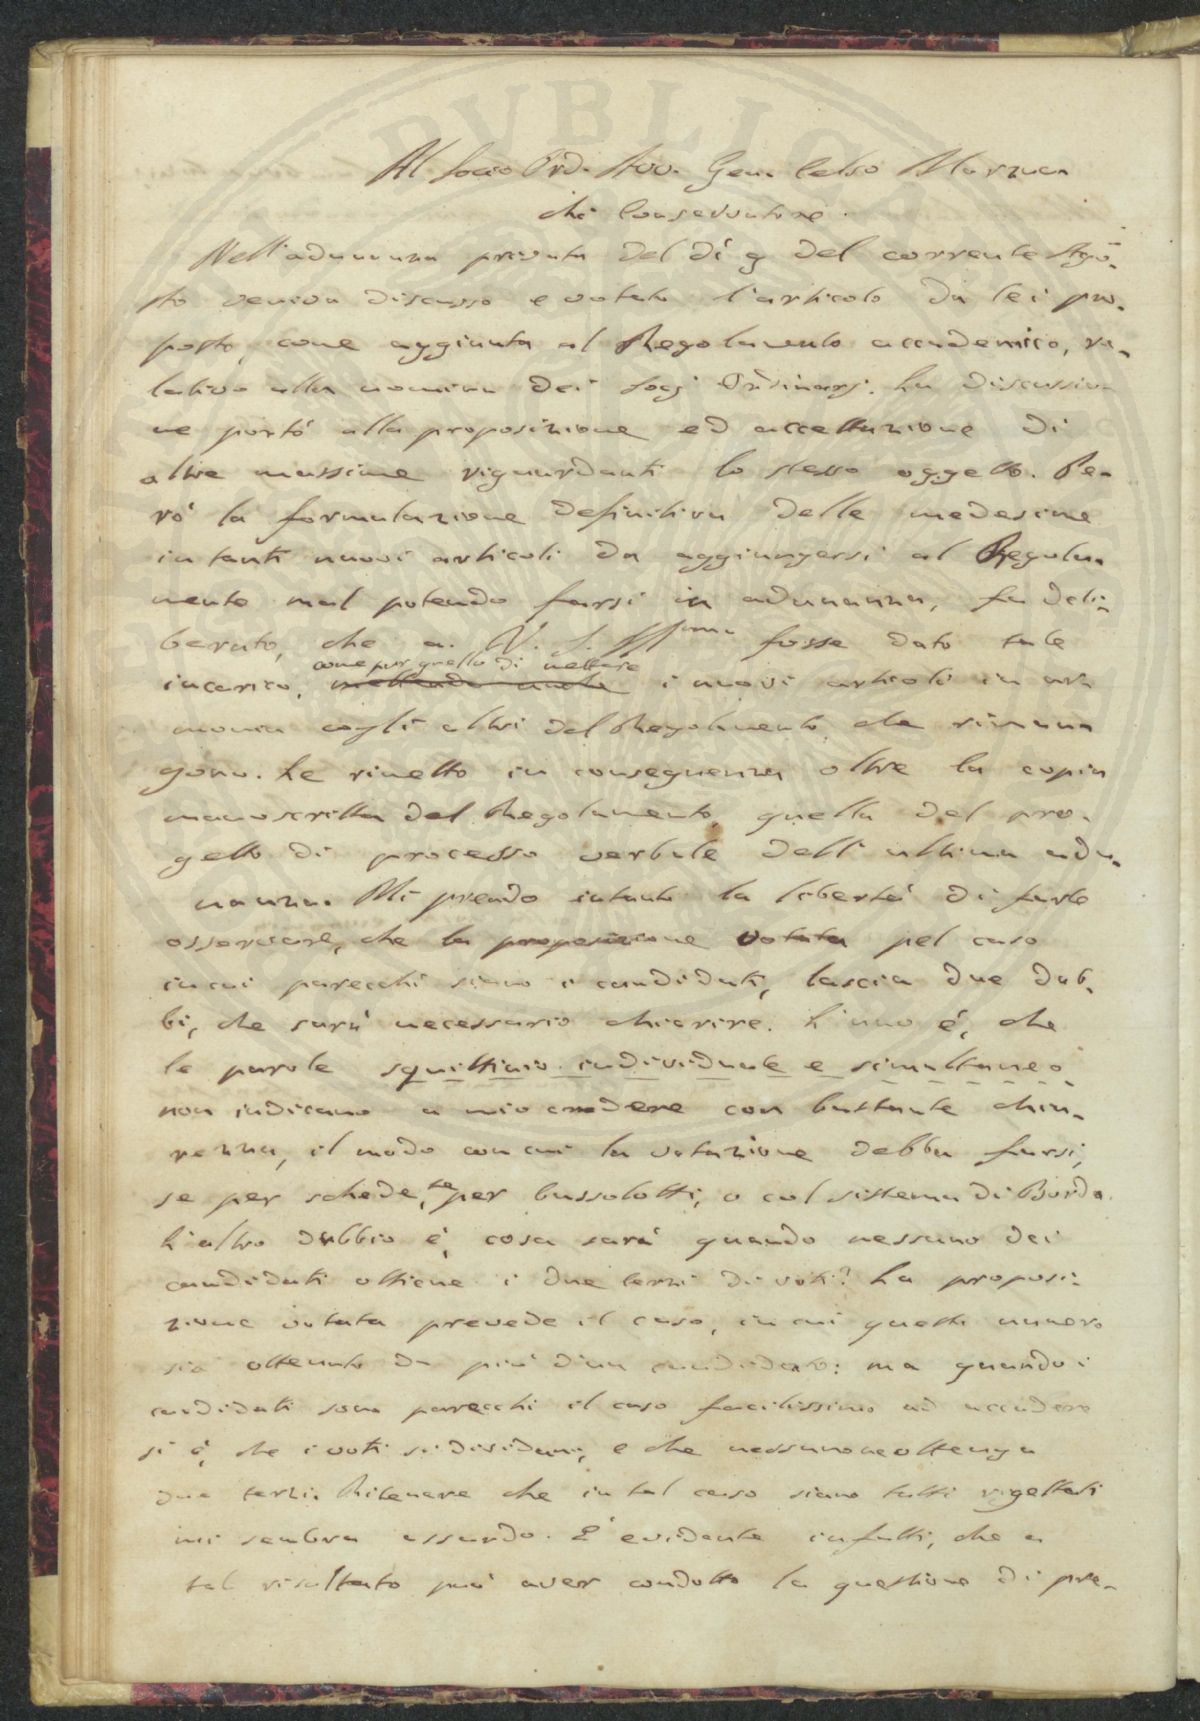 Al Socio Ord. Avv. Gen. Celso Marzuc-
chi Conservatore.
Nell'adunanza privata del dì 9 del corrente Ago-
sto veniva discusso e votato l'articolo da lei pro-
posto, come aggiunta al Regolamento accademico, re-
lativo alla nomina dei Socj Ordinarj. La discussio-
ne portò alla proposizione ed accettazione di
altre massime riguardanti lo stesso oggetto. Pe-
rò la formulazione definitiva delle medesime
in tanti nuovi articoli da aggiungersi al Regola-
mento mal potendo farsi in adunanza, fu deli-
berato, che a V. S. Ill.ma fosse dato tale
come pur quello di mettere
incarico, i nuovi articoli in ar-
monia cogli altri del Regolamento, che riman-
gono. Le rimetto in conseguenza oltre la copia
manoscritta del Regolamento, quella del pro-
getto di processo verbale dell'ultima adu-
nanza. Mi prendo intanto la libertà di farle
osservare, che la proposizione votata pel caso
in cui parecchi siano i candidati, lascia due dub-
bi, che sarà necessario chiarire. L'uno è, che
le parole squittinio individuale e simultaneo
non indicano a mio credere con bastante chia-
rezza, il modo con cui la votazione debba farsi,
se per schede, se per bussolotti, o col sistema di Borda.
L'altro dubbio è, cosa sarà quando nessuno dei
candidati ottiene i due terzi di voti? La proposi-
zione votata prevede il caso, in cui questo numero
sia ottenuto da più d'un candidato: ma quando i
candidati sono parecchi il caso facilissimo ad accadere
si è, che i voti si dividano, e che nessuno ne ottenga
due terzi. Ritenere che in tal caso siano tutti rigettati
mi sembra assurdo. È evidente infatti, che a
tal risultato può aver condotto la questione di pre-